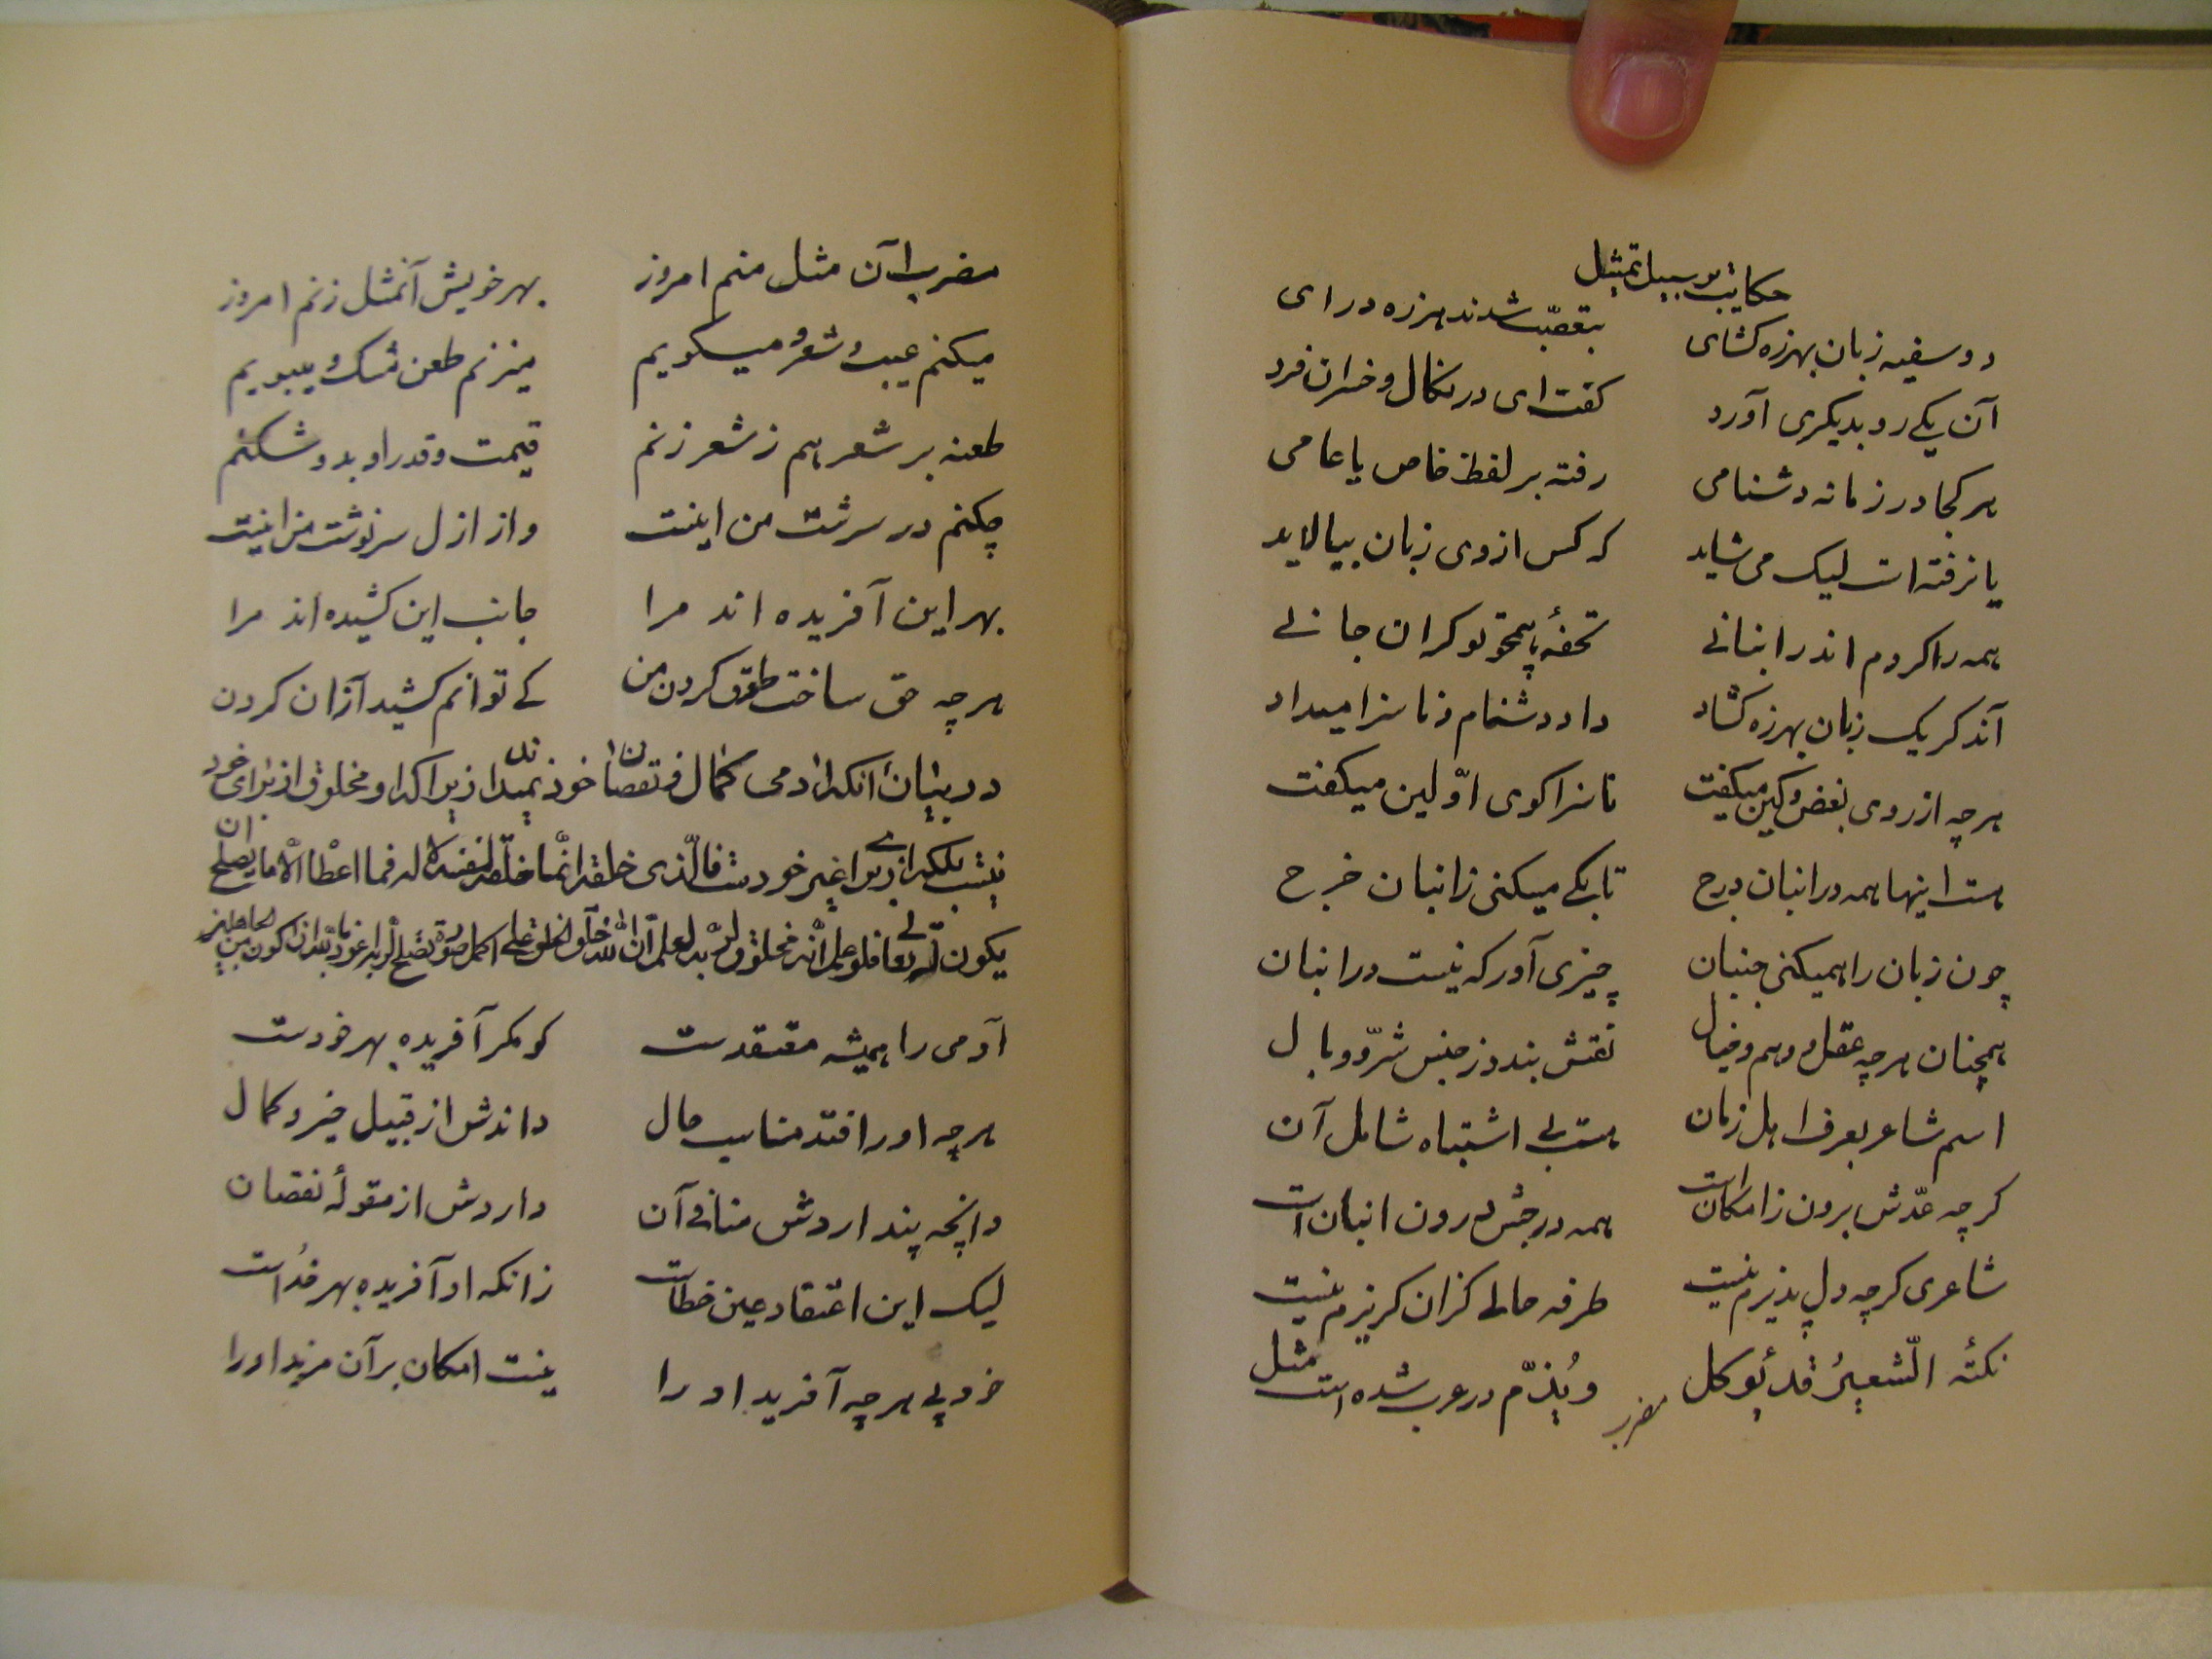 حکایت بر سبیل تمثیل
دو سفیه زبان بهرزه کشای بتعصّب شدند هرزه درای
آن یکے رو بدیکری آورد کفت ای در نکال و خسران فرد
هر کجا در زمانه دشنامی رفته بر لفظ خاص یا عامی
یا نرفته است لیک می شاید که کس از وی زبان بیالاید
همه را کردم اندر انبانے تحفهٔ همچو تو کران جانے
آندکر یک زبان بهرزه کشاد داد دشنام و ناسزا میداد
هر چه از روی بغض و کین میکفت ناسزا کوی اوّلین میکفت
هست اینها همه در انبان درج تا بکے میکنی ز انبان خرج
چون زبان را همیکنی جنبان چیزی آور که نیست در انبان
همچنان هر چه عقل و وهم و خیال نقش بندد ز جنس شرّ و وبال
اسم شاعر بعرف اهل زمان هست بے اشتباه شامل آن
کرچه عدّش برون ز امکان است همه در جش درون انبان است
شاعری کرچه دل پذیرم نیست طرفه حالے کزان کزیرم نیست
نکتهٔ الشّعیرُ قد یُؤکل و یُذمّ در عرب شده است مثل
مضرب
مضرب آن مثل منم امروز بهر خویش آنمثل زنم امروز
میکنم عیب شعر و میکویم میزنم طعن مشک و میبویم
طعنه بر شعر هم ز شعر زنم قیمت و قدر او بدو شکنم
چکنم در سرشت من اینست وز ازل سرنوشت من اینست
بهر این آفریده اند مرا جانب این کشیده اند مرا
هر چه حق ساخت طوق کردن من کے توانم کشید ازان کردن
در بیان آنکه آدمی کمال و نقصان خود نمیداند زیرا که او مخلوق از برای خود
نیست بلکه از برای غیر خودست فالّذی خلقه انّما خلقه لنفسه لا له فما اعطاه الّا ما یصلح ان
یکون له تعالے فلو علم انّه مخلوق لربّه لعلم انّ اللّه خلق الخلق علے اکمل صورة تصلح لربّه اعوذ باللّه ان اکون من الجاهلین
آدمی را همیشه معتقدست کو مکر آفریده بهر خودست
هر چه او را فتد مناسب حال داندش از قبیل خیر و کمال
وانچه پنداردش منافے آن داردش از مقولهٔ نقصان
لیک این اعتقاد عین خطاست زانکه او آفریده بهر خداست
خرد پے هر چه آفرید او را نیست امکان بر آن مزید او را